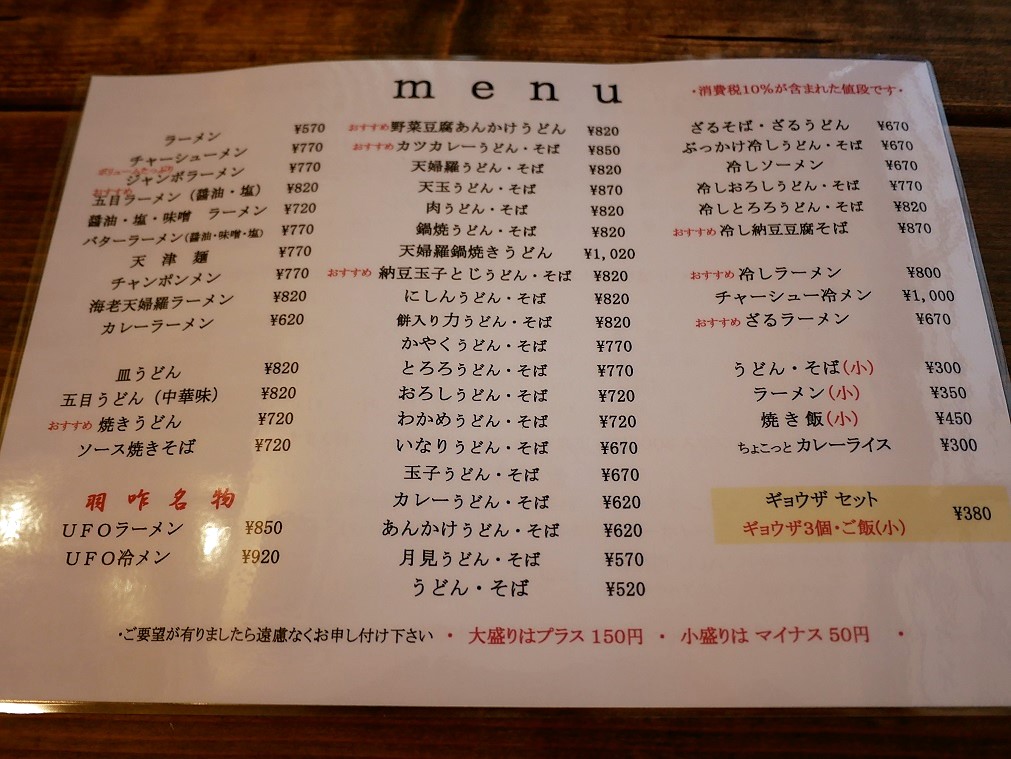 menu
・消費税10%が含まれた値段です・
ラーメン ¥570
チャーシューメン ¥770
ボリュームたっぷり
ジャンボラーメン ¥770
おすすめ
五目ラーメン（醤油・塩） ¥820
醤油・塩・味噌　ラーメン ¥720
バターラーメン(醤油・味噌・塩) ¥770
天　津　麺 ¥770
チャンポンメン ¥770
海老天婦羅ラーメン ¥820
カレーラーメン ¥620
皿うどん ¥820
五目うどん（中華味） ¥820
おすすめ 焼きうどん ¥720
ソース焼きそば ¥720
羽咋名物
UFOラーメン ¥850
UFO冷メン ¥920
おすすめ 野菜豆腐あんかけうどん ¥820
おすすめ カツカレーうどん・そば ¥850
天婦羅うどん・そば ¥820
天玉うどん・そば ¥870
肉うどん・そば ¥820
鍋焼うどん・そば ¥820
天婦羅鍋焼きうどん ¥1,020
おすすめ 納豆玉子とじうどん・そば ¥820
にしんうどん・そば ¥820
餅入り力うどん・そば ¥820
かやくうどん・そば ¥770
とろろうどん・そば ¥770
おろしうどん・そば ¥720
わかめうどん・そば ¥720
いなりうどん・そば ¥670
玉子うどん・そば ¥670
カレーうどん・そば ¥620
あんかけうどん・そば ¥620
月見うどん・そば ¥570
うどん・そば ¥520
ざるそば・ざるうどん ¥670
ぶっかけ冷しうどん・そば ¥670
冷しソーメン ¥670
冷しおろしうどん・そば ¥770
冷しとろろうどん・そば ¥820
おすすめ 冷し納豆豆腐そば ¥870
おすすめ 冷しラーメン ¥800
チャーシュー冷メン ¥1,000
おすすめ ざるラーメン ¥670
うどん・そば(小) ¥300
ラーメン(小) ¥350
焼き飯(小) ¥450
ちょこっとカレーライス ¥300
ギョウザ セット ¥380
ギョウザ3個・ご飯(小)
・ご要望が有りましたら遠慮なくお申し付け下さい ・ 大盛りはプラス 150円 ・ 小盛りは マイナス 50円 ・